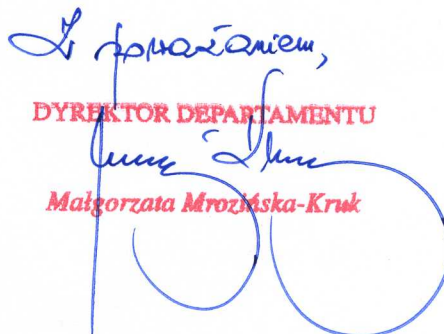 Z poważaniem,
DYREKTOR DEPARTAMENTU
Małgorzata Mrozińska-Kruk